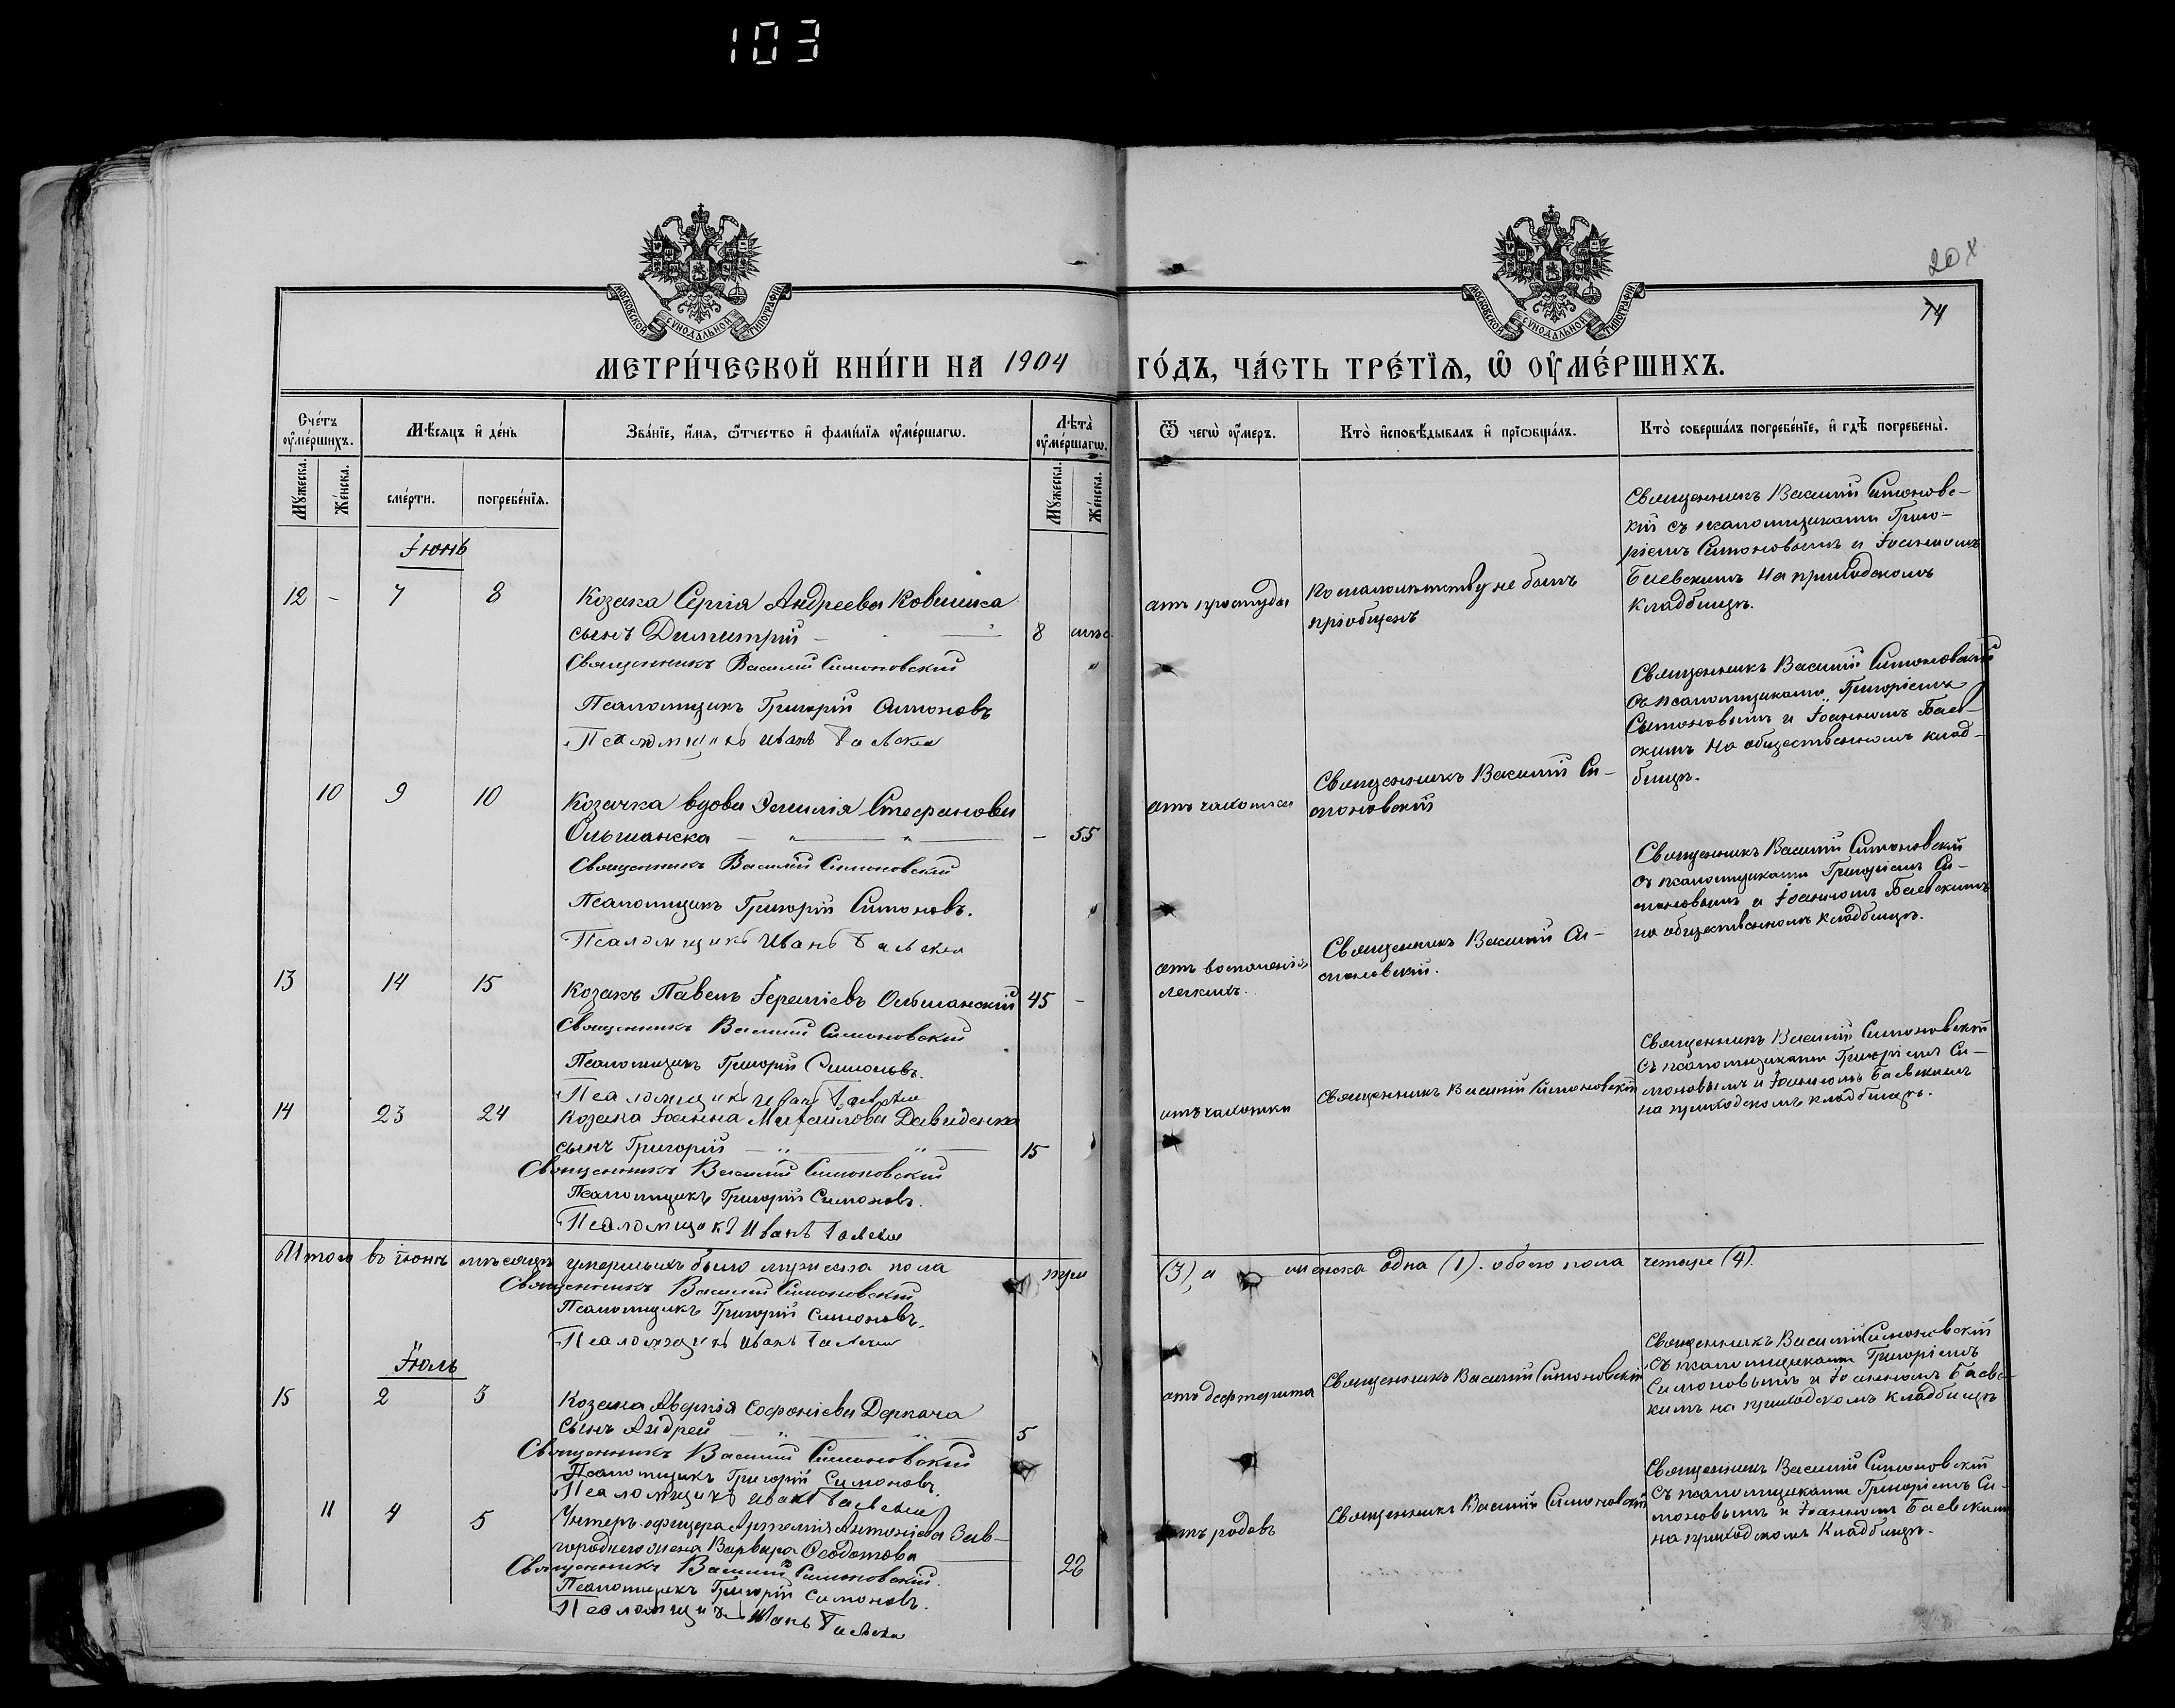 103
МОСКОВСКОЙ СѴНОДАЛЬНОЙ ТИПОГРАФІИ
МОСКОВСКОЙ СѴНОДАЛЬНОЙ ТИПОГРАФІИ
20
74
МЕТРИ́ЧЕСКОЙ КНИ́ГИ НА 1904 ГО́ДЪ, ЧА́СТЬ ТРЕ́ТІѦ, Ѡ҆ ОУ҆МЕ́РШИХЪ.
Сче́тъ оу҆ме́ршихъ.
Мѣ́сяцъ и҆ де́нь
Зва́нїе, и҆́мѧ, ѿтчество и҆ фамилїѧ оу҆ме́ршагѡ.
Лѣта̀ оу҆ме́ршагѡ.
Ѿ чегѡ̀ оу҆́меръ.
Кто̀ и҆сповѣ́дывалъ и҆ прїѡбща́лъ.
Кто̀ соверша́лъ погребе́нїе, и҆ гдѣ̀ погребены̀.
Мꙋ́жеска.
Же́нска.
сме́рти.
погребе́нїѧ.
Мꙋ́жеска.
Же́нска.
Іюнь
12 - 7 8 Козака Сергія Андреева Ковшика
сынъ Димитрій - 8
Священникъ Василій Симоновскій
Псаломщикъ Григорій Симоновъ
Псаломщикъ Иванъ Баевскій
отъ простуды
По малолѣтству не былъ
пріобщенъ
Священникъ Василій Симоновс-
кій съ псаломщиками Григо-
ріемъ Симоновымъ и Іоанномъ
Баевскимъ на приходскомъ
кладбищѣ.
10 9 10 Козачка вдова Стефанова
Ольшанска - 55
Священникъ Василій Симоновскій
Псаломщикъ Григорій Симоновъ.
Псаломщикъ Иванъ Баевскій
отъ чахотки
Священникъ Василій Си-
моновскій
Священникъ Василій Симоновскій
съ псаломщиками Григоріемъ
Симоновымъ и Іоанномъ Баев-
скимъ на общественномъ клад-
бищѣ.
13 14 15 Козакъ Павелъ Іереміевъ Ольшанскій 45 -
Священникъ Василій Симоновскій
Псаломщикъ Григорій Симоновъ.
Псаломщикъ Иванъ Баевскій
отъ воспаленія
легкихъ.
Священникъ Василій Си-
моновскій.
Священникъ Василій Симоновскій
съ псаломщиками Григоріемъ Си-
моновымъ и Іоанномъ Баевскимъ
на общественномъ кладбищѣ.
14 23 24 Козака Іоанна Михайлова Давиденка
сынъ Григорій 15
Священникъ Василій Симоновскій
Псаломщикъ Григорій Симоновъ.
Псаломщикъ Иванъ Баевскій
отъ чахотки
Священникъ Василій Симоновскій
Священникъ Василій Симоновскій
съ псаломщиками Григоріемъ Си-
моновымъ и Іоанномъ Баевскимъ
на приходскомъ кладбищѣ.
Итого въ іюнѣ мѣсяцѣ умершихъ было мужеска пола три (3), а женска одна (1). обоего пола четыре (4).
Священникъ Василій Симоновскій
Псаломщикъ Григорій Симоновъ.
Псаломщикъ Иванъ Баевскій
Іюль
15 2 3 Козака Аверкія Софоніева Деркача
сынъ Андрей 5
Священникъ Василій Симоновскій
Псаломщикъ Григорій Симоновъ.
Псаломщикъ Иванъ Баевскій
отъ дефтерита
Священникъ Василій Симоновскій
Священникъ Василій Симоновскій
съ псаломщиками Григоріемъ
Симоновымъ и Іоанномъ Баевс-
кимъ на приходскомъ кладбищѣ
11 4 5 Унтеръ-офицера Артемія Антоніева Зав-
городнего жена Варвара Феодотова 26
Священникъ Василій Симоновскій.
Псаломщикъ Григорій Симоновъ.
Псаломщикъ Иванъ Баевскій
отъ родовъ
Священникъ Василій Симоновскій
Священникъ Василій Симоновскій
съ псаломщиками Григоріемъ Си-
моновымъ и Іоанномъ Баевскимъ
на приходскомъ кладбищѣ.